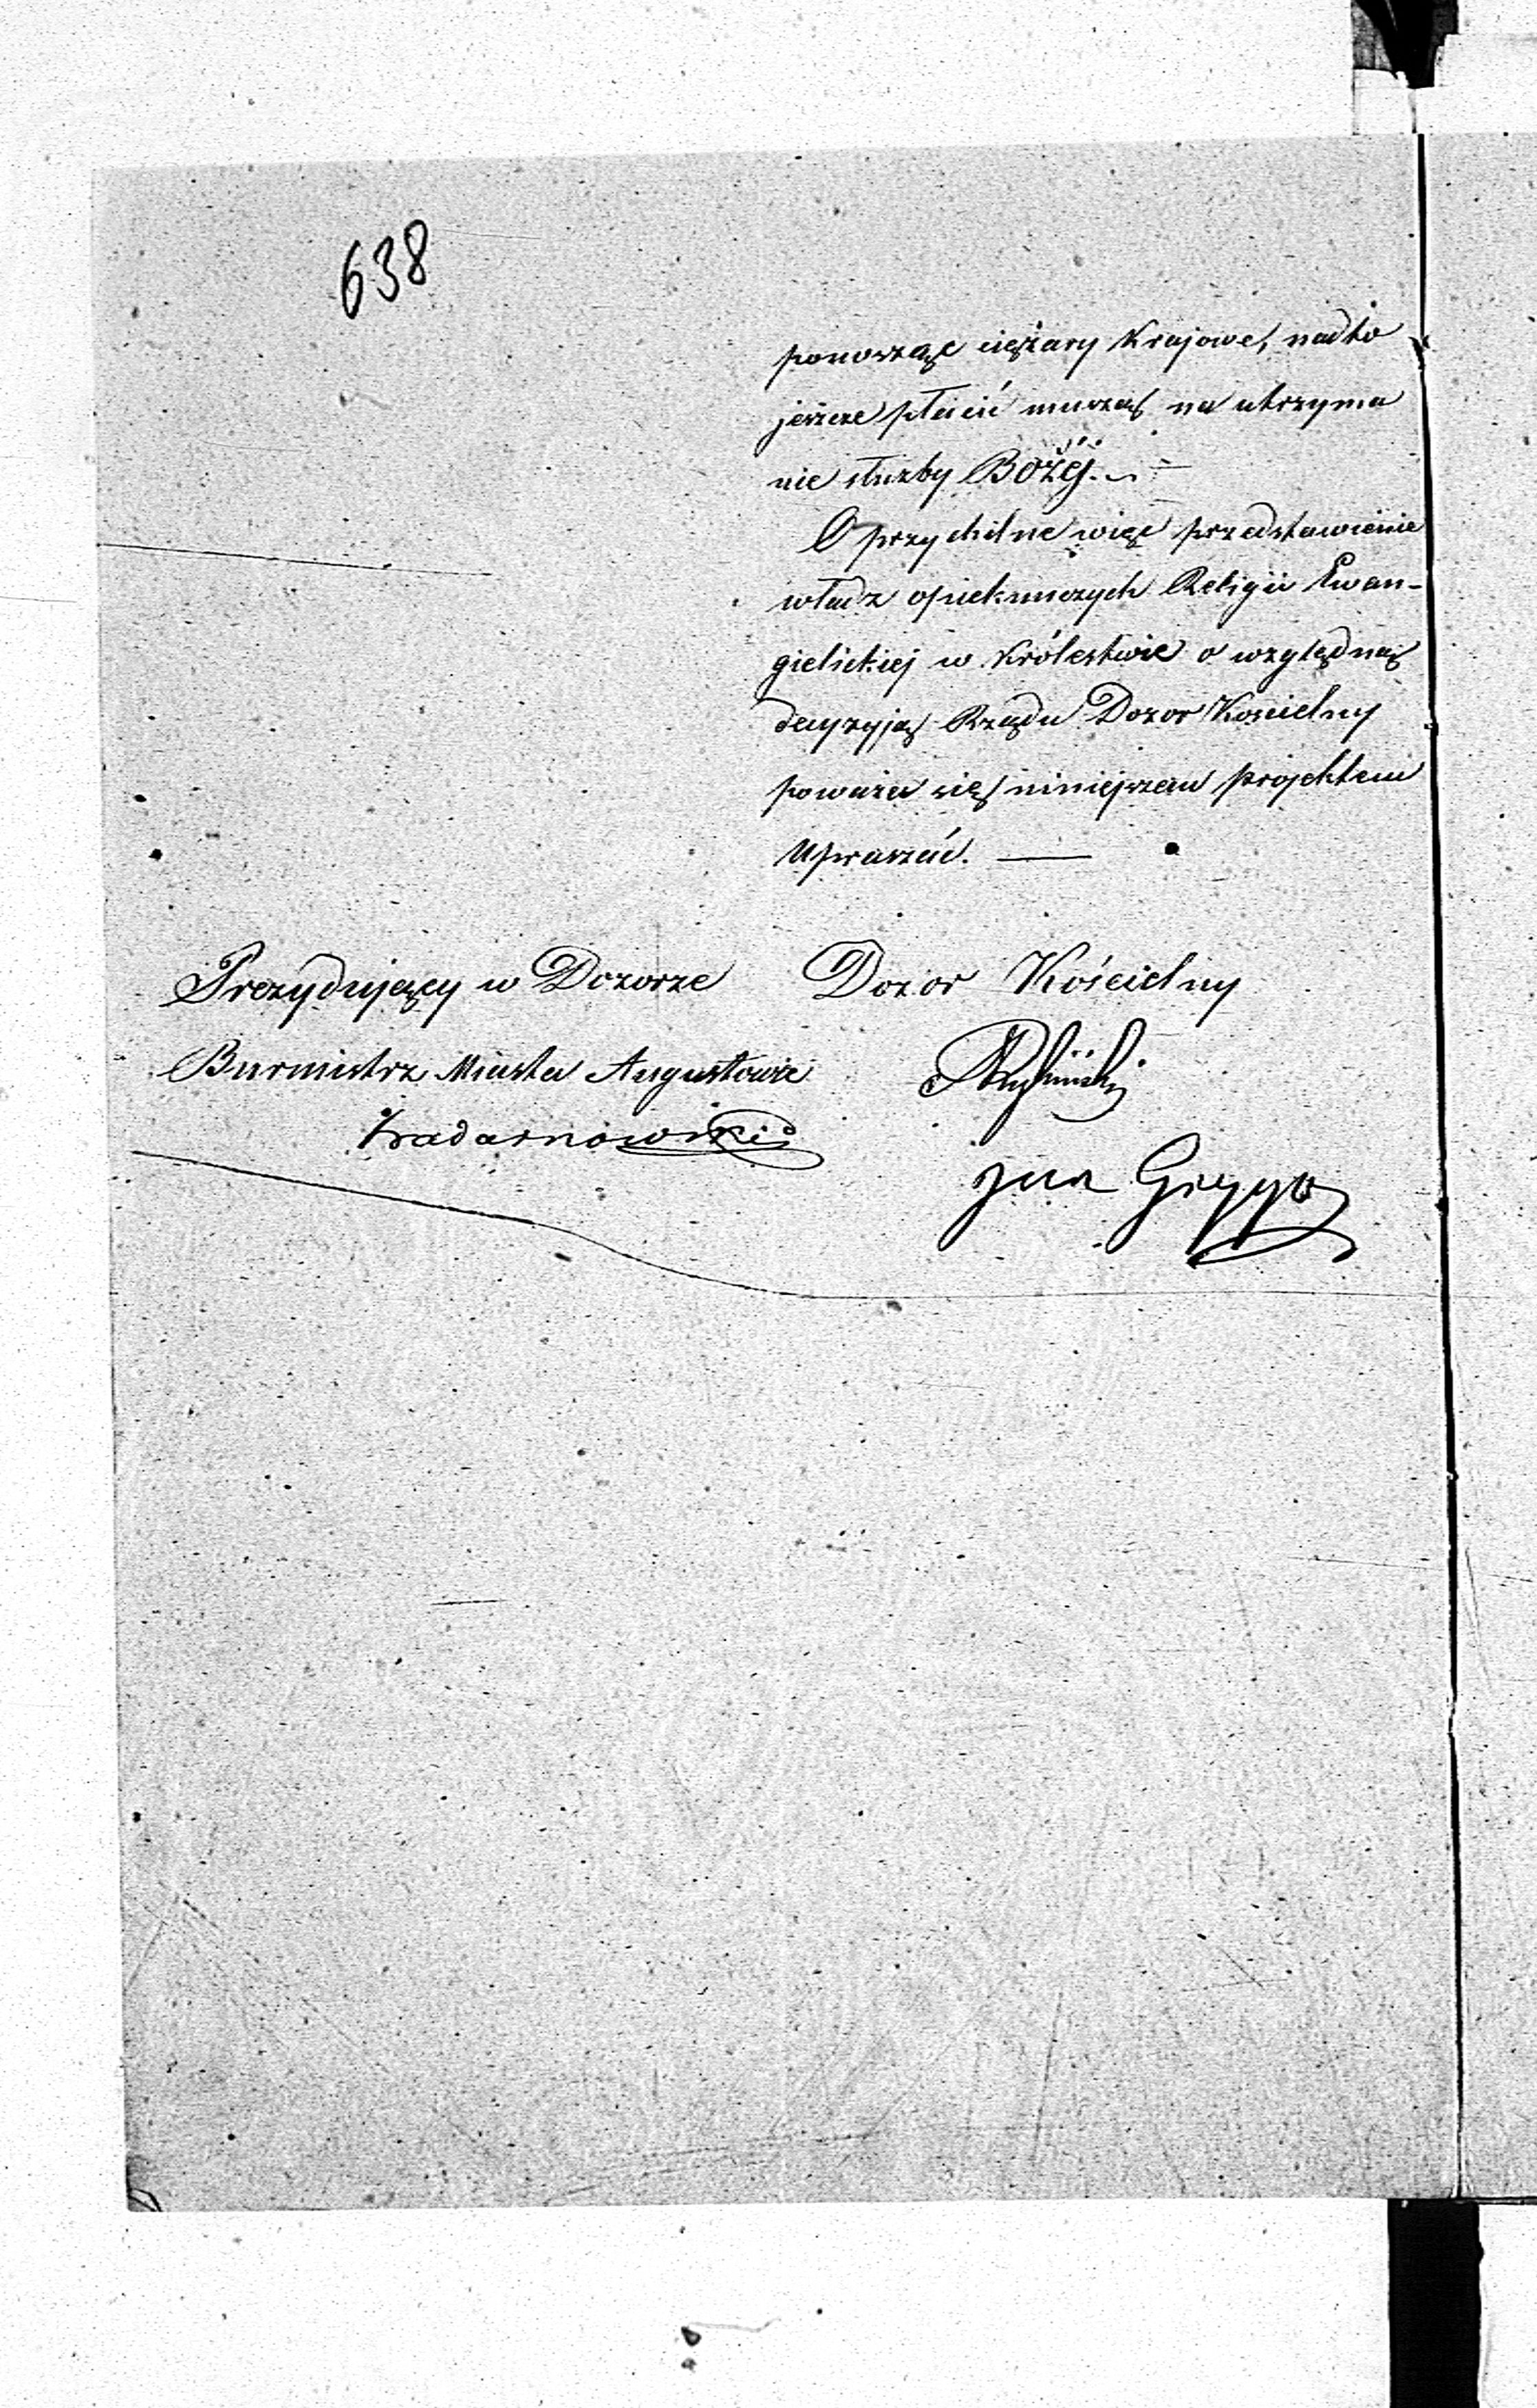 638
ponosząc ciężary Krajowe, nadto
jeszcze płacić muszą na utrzyma
nie służby Bożéj.
O przychilne więc przedstawienie
władz opiekunczych Religii Ewan-
gielickiej w Królestwie o względną
decyzyją Rządu Dozor Koscielny
poważa się niniejszem projektem
Upraszać.
Prezydujący w Dozorze
Burmistrz Miasta Augustowa
Dozor Kościelny
Jan Gryyo